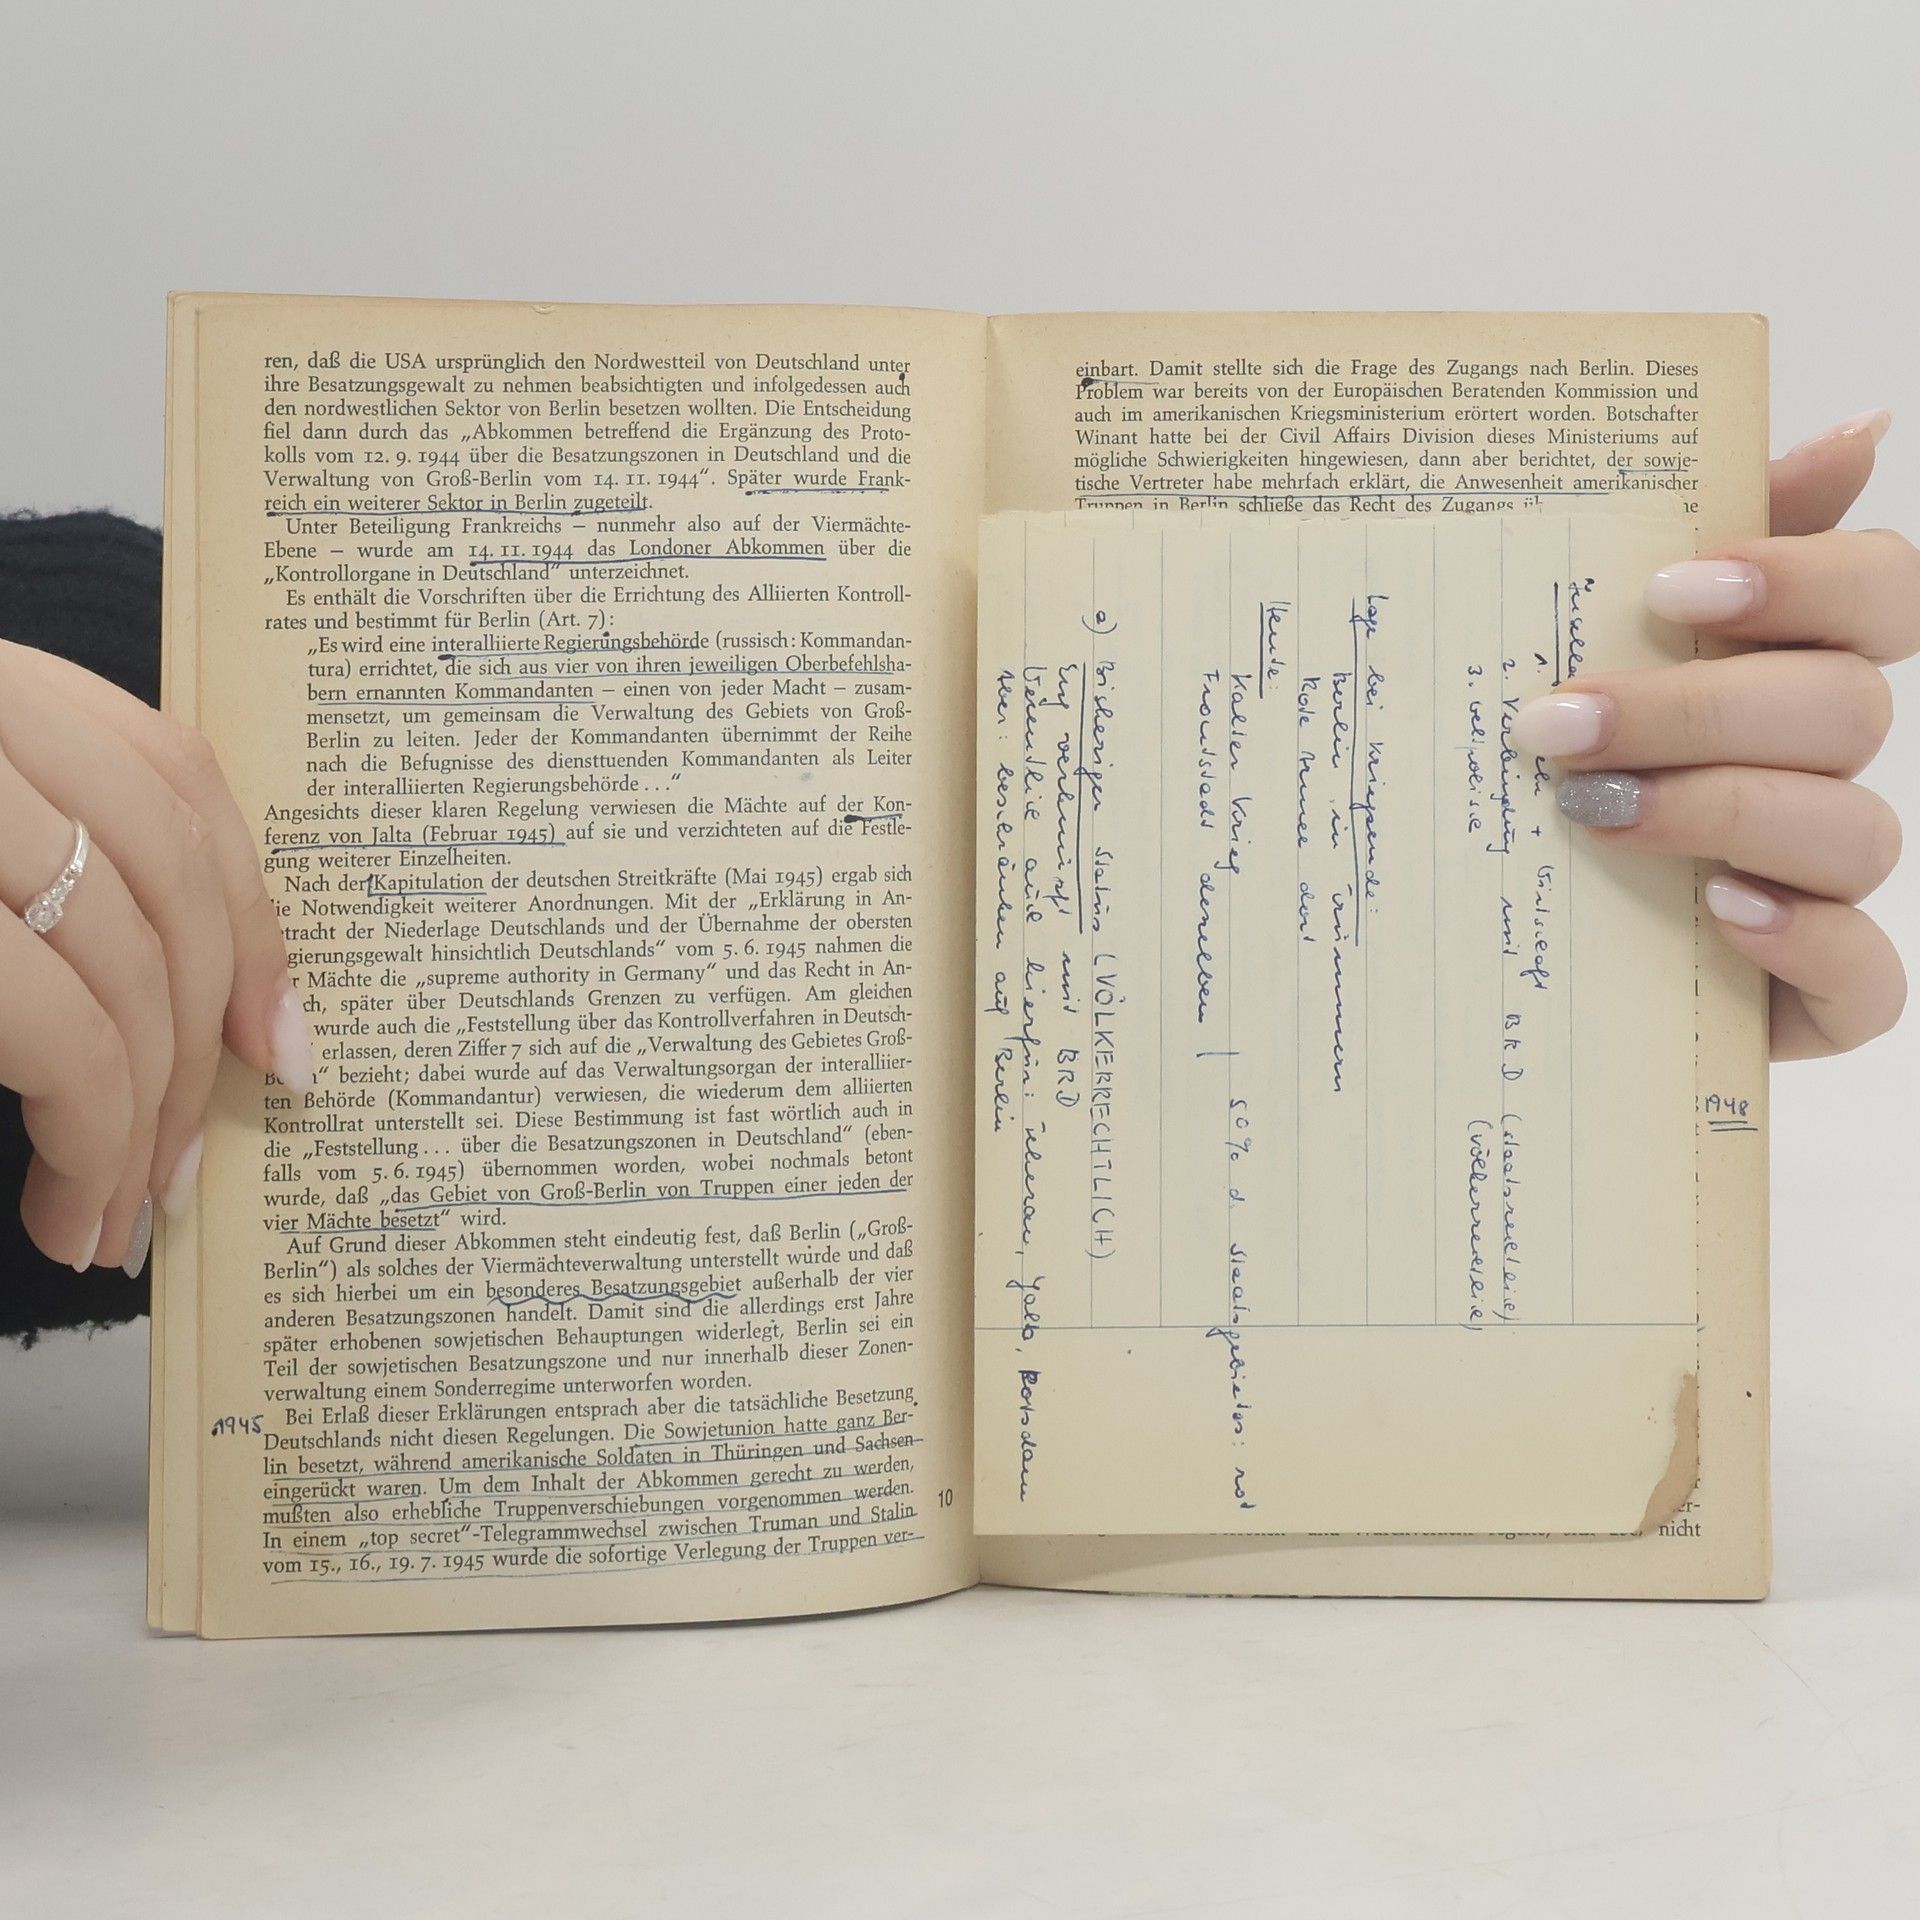 ren, daß die USA ursprünglich den Nordwestteil von Deutschland unter
ihre Besatzungsgewalt zu nehmen beabsichtigten und infolgedessen auch
den nordwestlichen Sektor von Berlin besetzen wollten. Die Entscheidung
fiel dann durch das „Abkommen betreffend die Ergänzung des Proto-
kolls vom 12. 9. 1944 über die Besatzungszonen in Deutschland und die
Verwaltung von Groß-Berlin vom 14. 11. 1944“. Später wurde Frank-
reich ein weiterer Sektor in Berlin zugeteilt.
Unter Beteiligung Frankreichs – nunmehr also auf der Viermächte-
Ebene – wurde am 14. 11. 1944 das Londoner Abkommen über die
„Kontrollorgane in Deutschland“ unterzeichnet.
Es enthält die Vorschriften über die Errichtung des Alliierten Kontroll-
rates und bestimmt für Berlin (Art. 7):
„Es wird eine interalliierte Regierungsbehörde (russisch: Kommandan-
tura) errichtet, die sich aus vier von ihren jeweiligen Oberbefehlsha-
bern ernannten Kommandanten – einen von jeder Macht – zusam-
mensetzt, um gemeinsam die Verwaltung des Gebiets von Groß-
Berlin zu leiten. Jeder der Kommandanten übernimmt der Reihe
nach die Befugnisse des diensttuenden Kommandanten als Leiter
der interalliierten Regierungsbehörde . . .“
Angesichts dieser klaren Regelung verwiesen die Mächte auf der Kon-
ferenz von Jalta (Februar 1945) auf sie und verzichteten auf die Festle-
gung weiterer Einzelheiten.
Nach der Kapitulation der deutschen Streitkräfte (Mai 1945) ergab sich
die Notwendigkeit weiterer Anordnungen. Mit der „Erklärung in An-
etracht der Niederlage Deutschlands und der Übernahme der obersten
gierungsgewalt hinsichtlich Deutschlands“ vom 5. 6. 1945 nahmen die
r Mächte die „supreme authority in Germany“ und das Recht in An-
ch, später über Deutschlands Grenzen zu verfügen. Am gleichen
wurde auch die „Feststellung über das Kontrollverfahren in Deutsch-
erlassen, deren Ziffer 7 sich auf die „Verwaltung des Gebietes Groß-
“ bezieht; dabei wurde auf das Verwaltungsorgan der interalliier-
ten Behörde (Kommandantur) verwiesen, die wiederum dem alliierten
Kontrollrat unterstellt sei. Diese Bestimmung ist fast wörtlich auch in
die „Feststellung . . . über die Besatzungszonen in Deutschland“ (eben-
falls vom 5. 6. 1945) übernommen worden, wobei nochmals betont
wurde, daß „das Gebiet von Groß-Berlin von Truppen einer jeden der
vier Mächte besetzt“ wird.
Auf Grund dieser Abkommen steht eindeutig fest, daß Berlin („Groß-
Berlin“) als solches der Viermächteverwaltung unterstellt wurde und daß
es sich hierbei um ein besonderes Besatzungsgebiet außerhalb der vier
anderen Besatzungszonen handelt. Damit sind die allerdings erst Jahre
später erhobenen sowjetischen Behauptungen widerlegt, Berlin sei ein
Teil der sowjetischen Besatzungszone und nur innerhalb dieser Zonen-
verwaltung einem Sonderregime unterworfen worden.
1945
Bei Erlaß dieser Erklärungen entsprach aber die tatsächliche Besetzung
Deutschlands nicht diesen Regelungen. Die Sowjetunion hatte ganz Ber-
lin besetzt, während amerikanische Soldaten in Thüringen und Sachsen
eingerückt waren. Um dem Inhalt der Abkommen gerecht zu werden,
mußten also erhebliche Truppenverschiebungen vorgenommen werden.
In einem „top secret“-Telegrammwechsel zwischen Truman und Stalin
vom 15., 16., 19. 7. 1945 wurde die sofortige Verlegung der Truppen ver-
10
einbart. Damit stellte sich die Frage des Zugangs nach Berlin. Dieses
Problem war bereits von der Europäischen Beratenden Kommission und
auch im amerikanischen Kriegsministerium erörtert worden. Botschafter
Winant hatte bei der Civil Affairs Division dieses Ministeriums auf
mögliche Schwierigkeiten hingewiesen, dann aber berichtet, der sowje-
tische Vertreter habe mehrfach erklärt, die Anwesenheit amerikanischer
Truppen in Berlin schließe das Recht des Zugangs
1948
1. + Wirtschaft
2. Verbindung mit BRD (staatsrechtlich)
3. weltpolitisch (völkerrechtlich)
Lage bei Kriegsende:
Berlin in Trümmern
Rote Armee dort
Heute:
Kalter Krieg 50% d. Staatsgebietes: rot
Frontstadt denselben
a) Bisheriger Status (VÖLKERRECHTLICH)
Eng verknüpft mit BRD
Wesentlich auch hierfür: Teheran, Yalta, Potsdam
Aber: beschränken auf Berlin
nicht